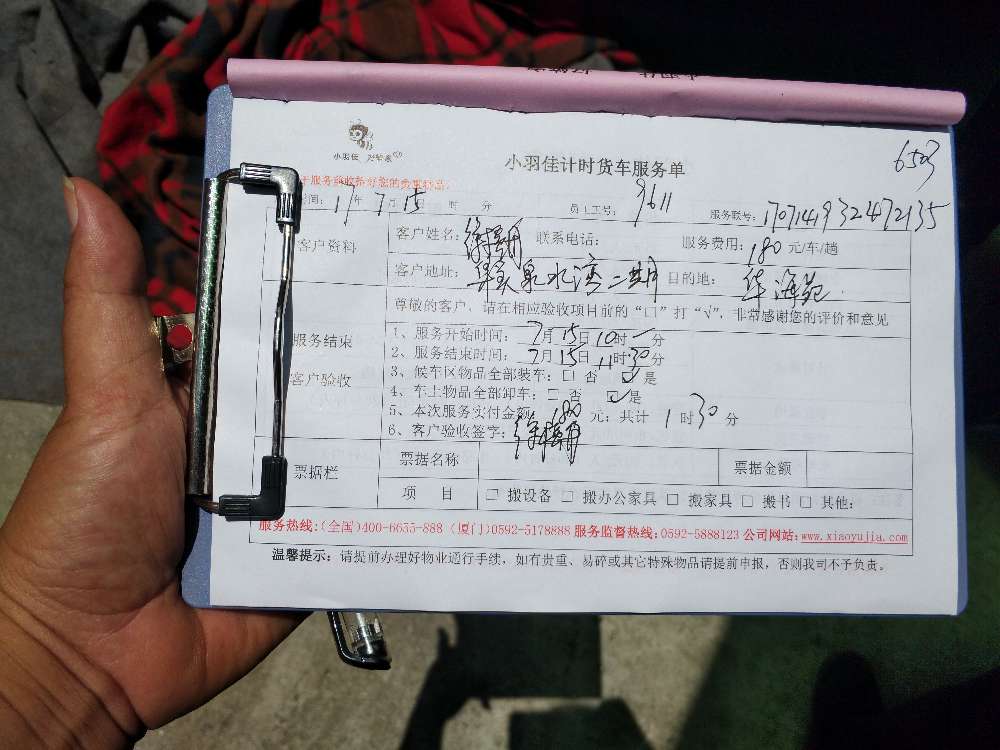 6503
小羽佳计时货车服务单
小羽佳
服务前请收拾好您的贵重物品。
时间: 17年7月15日 时 分 员工工号: 9611 服务联号: 1707141932472135
客户资料 客户姓名: 联系电话: 服务费用: 180元/车/趟
客户地址: 泉水湾二期 目的地: 华海苑
尊敬的客户、请在相应验收项目前的“口”打“√”,非常感谢您的评价和意见
服务结束
客户验收
1、服务开始时间: 7月15日10时一分
2、服务结束时间: 7月15日11时30分
3、候车区物品全部装车: □ 否 ☑是
4、车上物品全部卸车: □ 否 ☑是
5、本次服务实付金额: 180元; 共计 1时30分
6、客户验收签字:
票据栏 票据名称 票据金额
项 目 □ 搬设备 □ 搬办公家具 □ 搬家具 □ 搬书 □ 其他:
服务热线:(全国)400-6655-888 (厦门)0592-5178888 服务监督热线:0592-5888123 公司网站: www.xiaoyujia.com
温馨提示: 请提前办理好物业通行手续, 如有贵重、易碎或其它特殊物品请提前申报, 否则我司不予负责。